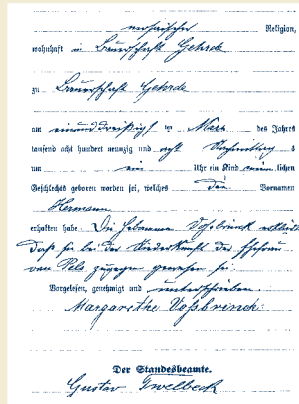 Religion,
wohnhaft in Bauerschaft Gehrde
zu Bauerschaft Gehrde
am einunddreißigsten des Jahres
tausend acht hundert neunzig und acht Nachmittags
um ein Uhr ein Kind lichen
Geschlechts geboren worden sei, welches den Vornamen
Hermann
erhalten habe. Die Hebamme Voßbrinck erklärte
daß sie bei der Niederkunft der Ehefrau
van Pels zugegen gewesen sei
Vorgelesen, genehmigt und unterschrieben
Margarethe Voßbrinck.
Der Standesbeamte.
Gustav